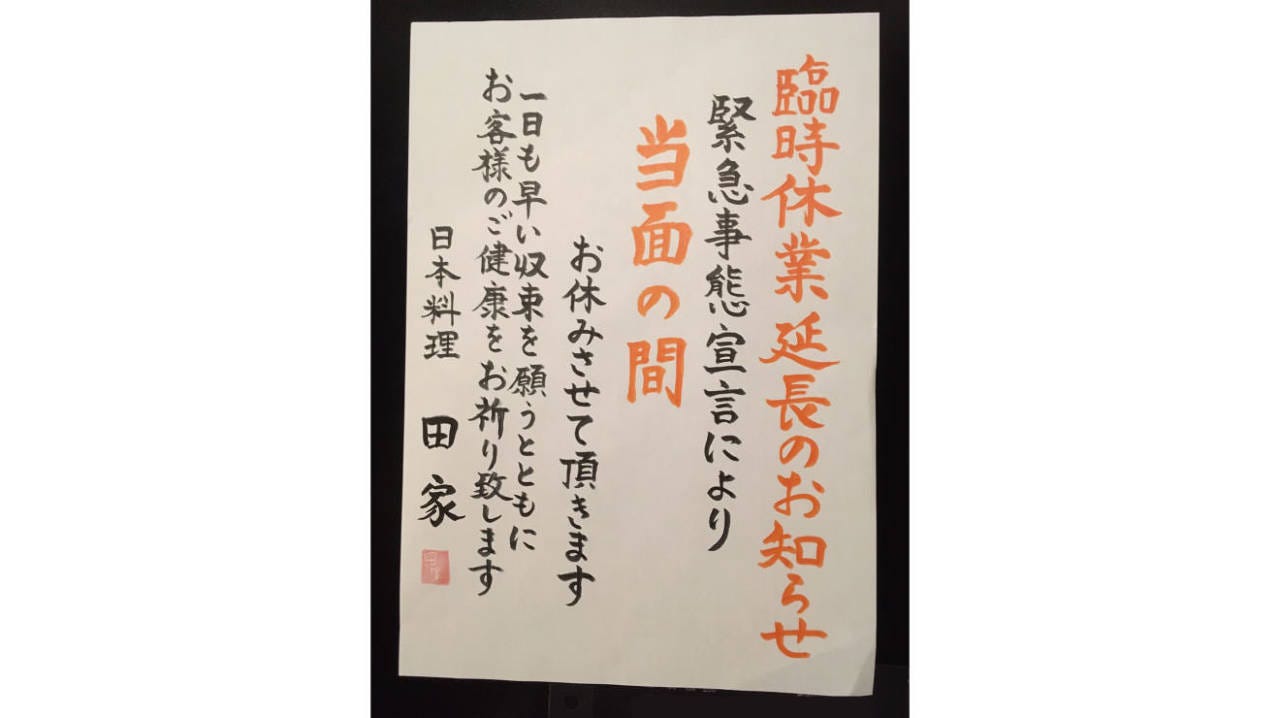 臨時休業延長のお知らせ
緊急事態宣言により
当面の間
お休みさせて頂きます
一日も早い収束を願うとともに
お客様のご健康をお祈り致します
日本料理 田家